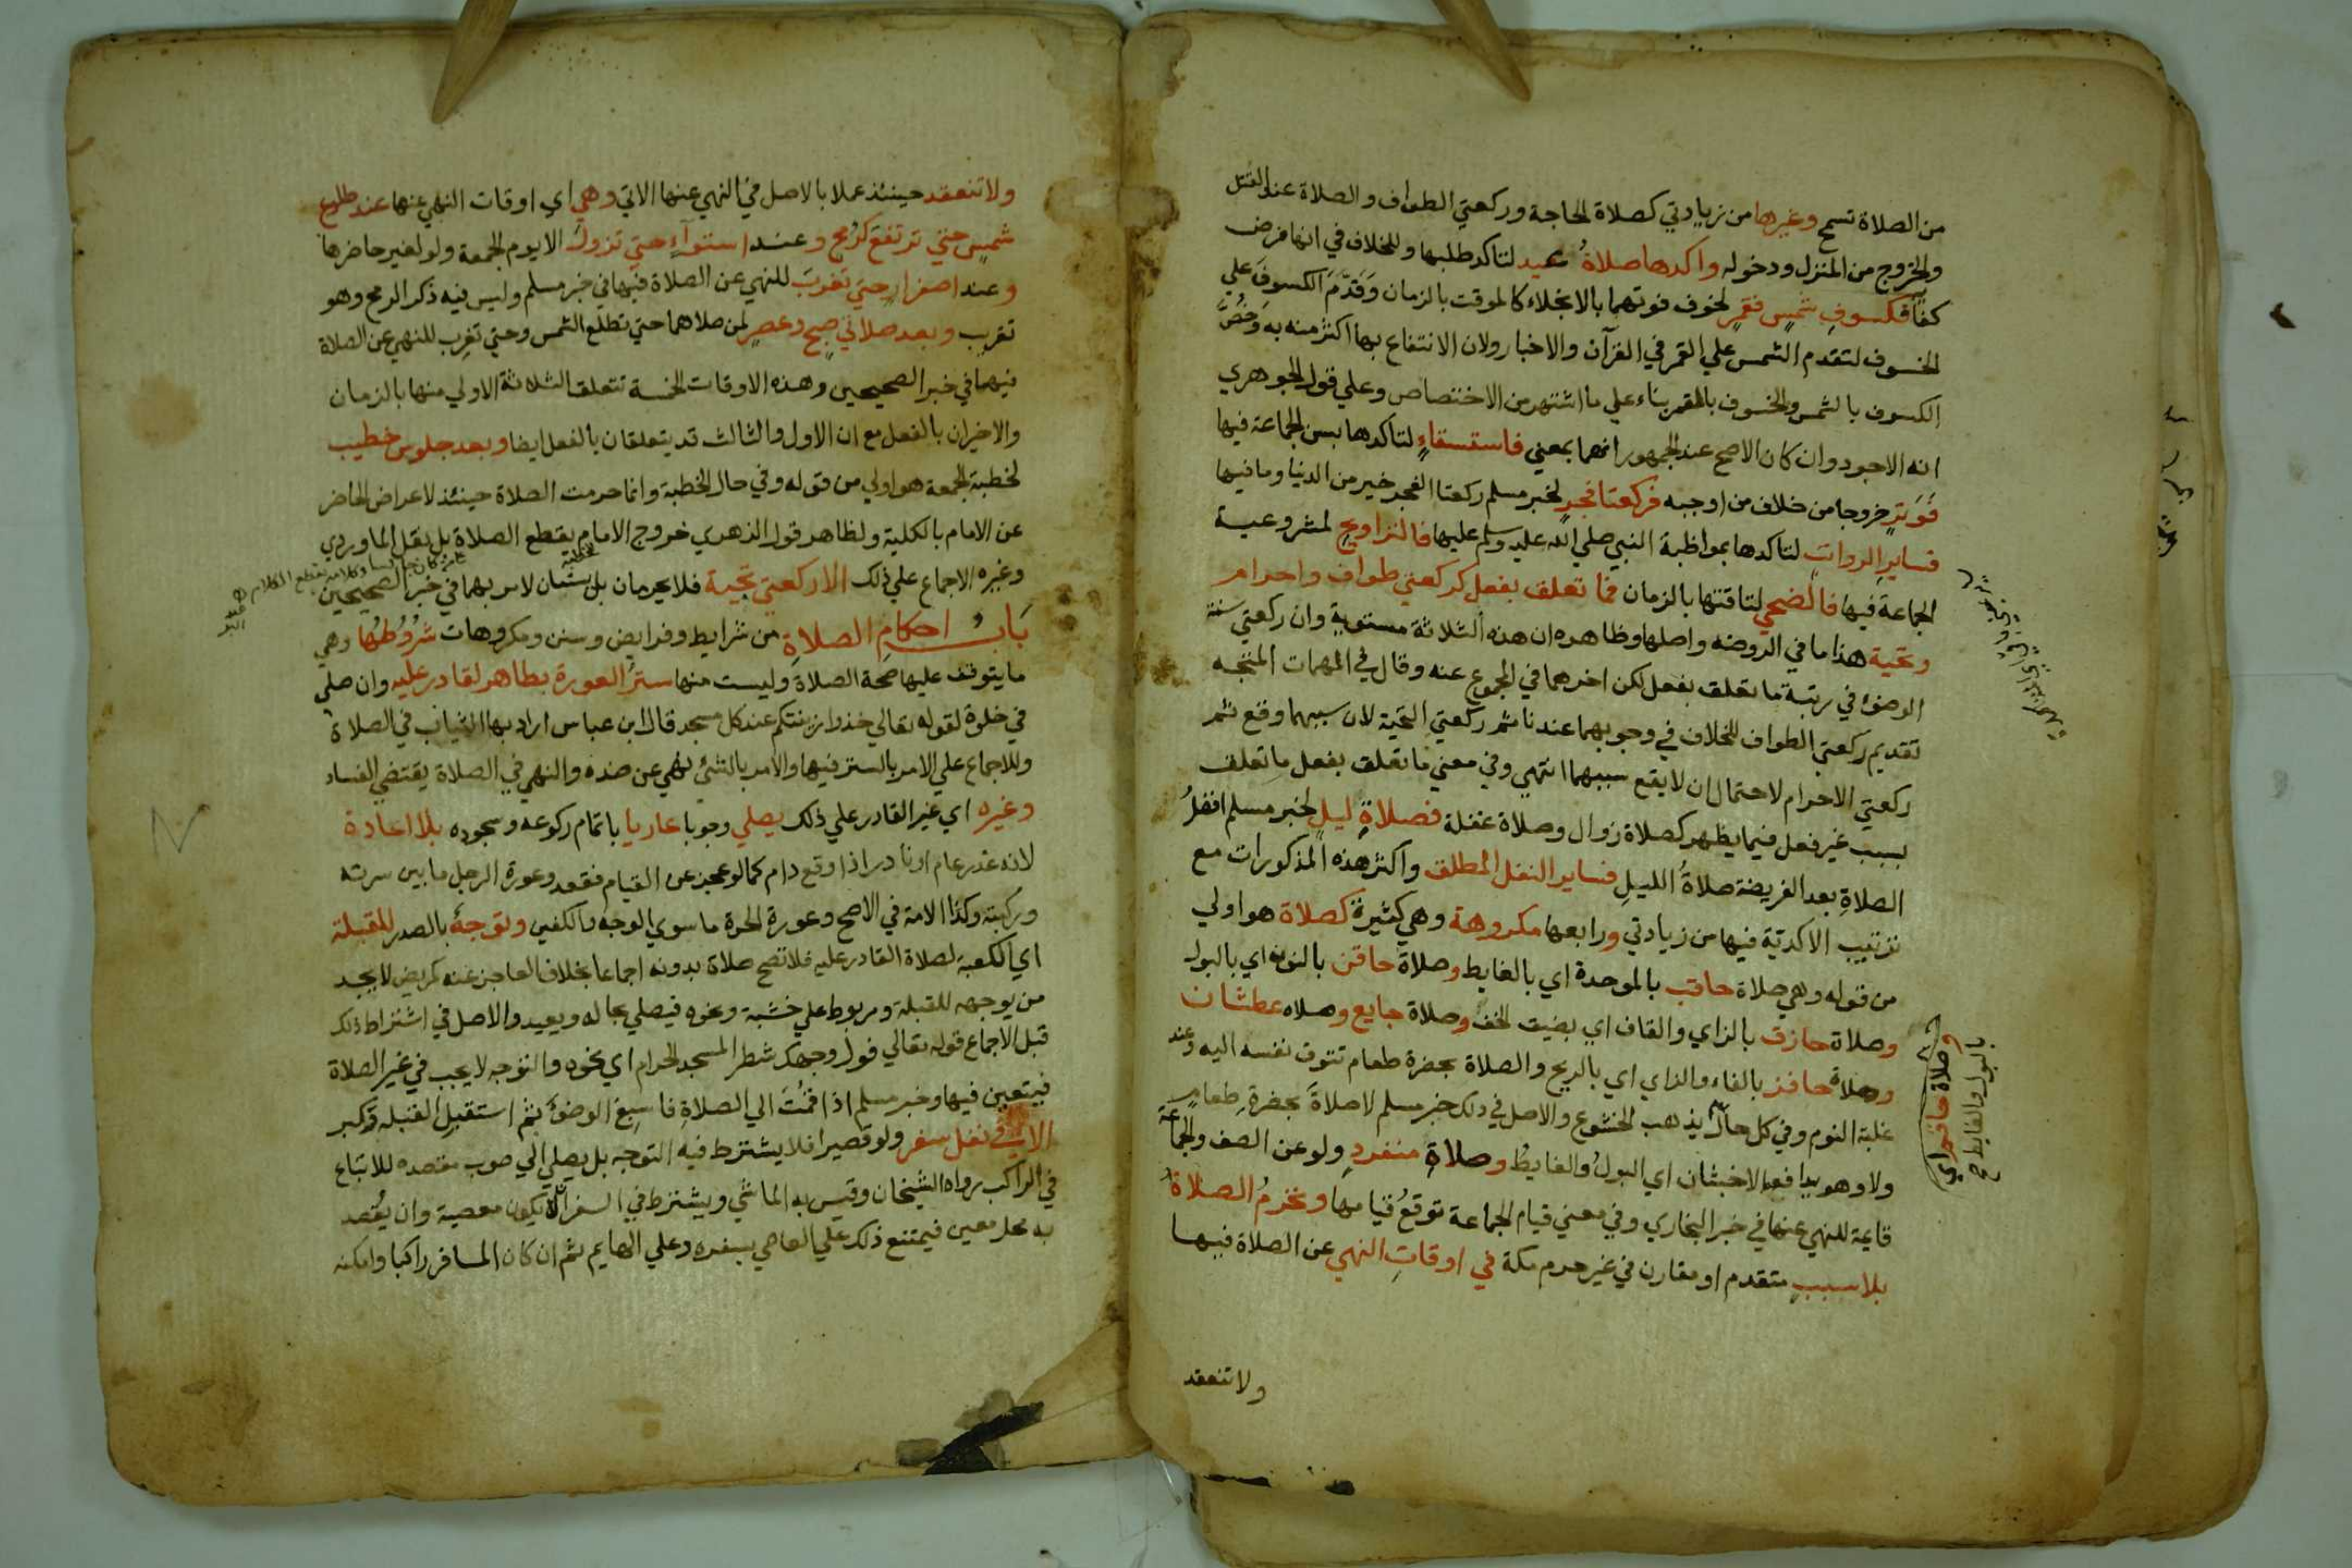 من الصلاة تسمح وغيرها من زيادتي كصلاة الحاجة وركعتي الطواف والصلاة عند القتل
والخروج من المنزل ودخوله واكدها صلاةُ عيد لتاكد طلبها وللخلاف في انها فرض
كفاية فكسوفِ شمسٍ فقمرٍ لخوف فوتهما بالانجلاء كالموقت بالزمان وَقَدَّمَ الكسوفَ علي
الخسوف لتقدم الشمس علي القمر في القرآن والاخبار ولان الانتفاع بها اكثر منه به وَخُصَّ
الكسوف بالشمس والخسوف بالقمر بناء علي ما اشتهر من الاختصاص وعلي قول الجوهري
انه الاجود وان كان الاصح عند الجمهور انهما بمعني فاستسقاءٍ لتاكدها بسن الجماعة فيها
فَوَترٍ خروجا من خلاف من اوجبه فركعتا فجرٍ لخبر مسلم ركعتا الفجر خير من الدنيا وما فيها
فسايرِ الرواتبِ لتاكدها بمواظبة النبي صلي الله عليه وسلم عليها فالتراويحِ لمشروعية
الجماعة فيها فالضحي لتاقتها بالزمان فما تعلق بفعل كركعتي طواف واحرام
وتحية هذا ما في الروضه واصلها وظاهره ان هذه الثلاثة مستوية وان ركعتي سنة
الوضوء في رتبة ما تعلق بفعل لكن اخرهما في المجموع عنه وقال في المهمات المتجه
تقديم ركعتي الطواف للخلاف في وجوبهما عندنا ثم ركعتي التحية لان سببهما وقع ثم
ركعتي الاحرام لاحتمال ان لا يقع سببهما انتهي وفي معني ما تعلق بفعل ما تعلق
بسبب غير فعل فيما يظهر كصلاة زوال وصلاة غفلة فصلاةِ ليلٍ لخبر مسلم افضلُ
الصلاةِ بعد الفريضة صلاةُ الليلِ فساير النفل المطلق واكثر هذه المذكورات مع
ترتيب الاكدية فيها من زيادتي ورابعها مكروهة وهي كثيرة كصلاة هو اولي
من قوله وهي صلاة حاقب بالموحدة اي بالغايط وصلاة حاقن بالنون اي بالبول
وصلاة حازق بالزاي والقاف اي بضيق الخف وصلاة جايع وصلاه عطشان
وصلاة حافز بالفاء والزاي اي بالريح والصلاة بحضرة طعام تتوق نفسه اليه وعند
غلبة النوم وفي كل حال يذهب الخشوع والاصل في ذلك خبر مسلم لا صلاةَ بحضرةِ طعام
ولا وهو يدافعه الاخبثان اي البولُ والغايطُ وصلاةِ منفردٍ ولو عن الصف والجماعة
قايمة للنهي عنها في خبر البخاري وفي معني قيام الجماعة توقعُ قيامها وتحرمُ الصلاةُ
بلا سببٍ متقدم او مقارن في غير حرم مكة في اوقاتِ النهي عن الصلاة فيها
ولا تنعقد
وصلاة حاقم اي
بالبول والغايط صح
ولا تنعقد حينئذ عملا بالاصل في النهي عنها الاتي وهي اي اوقات النهي عنها عند طلوع
شمسٍ حتي ترتفع كرمح وعند استوآءٍ حتي تزول الا يوم الجمعة ولو لغير حاضرها
وعند اصفرارٍ حتي تغربَ للنهي عن الصلاة فيها في خبر مسلم وليس فيه ذكر الرمح وهو
تقريب وبعد صلاتي صبحٍ وعصرٍ لمن صلاهما حتي تطلع الشمس وحتي تغرب للنهي عن الصلاة
فيهما في خبر الصحيحين وهذه الاوقات الخمسة تتعلق الثلاثة الاولي منها بالزمان
والاخيران بالفعل مع ان الاول والثالث قد يتعلقان بالفعل ايضا وبعد جلوس خطيب
لخطبة الجمعة هو اولي من قوله وفي حال الخطبة وانما حرمت الصلاة حينئذ لاعراض الحاضر
عن الامام بالكلية ولظاهر قول الزهري خروج الامام يقطع الصلاة بل نقل الماوردي
وغيره الاجماع علي ذلك الا ركعتي تحية فلا يحرمان بل يسنان لامر بهما في خبر الصحيحين
بَابُ احكامِ الصلاةِ من شرايط وفرايض وسنن ومكروهات شُرُوطُها وهي
ما يتوقف عليها صحة الصلاة وليست منها سترُ العورة بطاهر لقادر عليه وان صلي
في خلوة لقوله تعالي خذوا زينتكم عند كل مسجد قال ابن عباس اراد بها الثياب في الصلاة
وللاجماع علي الامر بالستر فيها والامر بالشئ نهي عن ضده والنهي في الصلاة يقتضي الفساد
وغيره اي غير القادر علي ذلك يصلي وجوبا عاريا باتمام ركوعه وسجوده بلا اعادة
لانه عذر عام او نادر اذا وقع دام كما لو عجز عن القيام فقعد وعورة الرجل ما بين سرته
وركبته وكذا الامة في الاصح وعورة الحرة ما سوي الوجه والكفين وتوجهٌ بالصدر للقبلة
اي الكعبة لصلاة القادر عليه فلا تصح صلاة بدونه اجماعا بخلاف العاجز عنه كمريض لا يجد
من يوجهه للقبلة ومربوط علي خشبة ونحوه فيصلي بحاله ويعيد والاصل في اشتراط ذلك
قبل الاجماع قوله تعالي فول وجهك شطر المسجد الحرام اي نحوه والتوجه لا يجب في غير الصلاة
فيتعين فيها وخبر مسلم اذا قمتَ الي الصلاةِ فاسبغِ الوضوء ثم استقبلِ القبلة وكبر
الا في نفل سفر ولو قصيرا فلا يشترط فيه التوجه بل يصلي الي صوب مقصده للاتباع
في الراكب رواه الشيخان وقيس به الماشي ويشترط في السفر الا يكون معصية وان يقصد
به محل معين فيمتنع ذلك علي العاصي بسفره وعلي الهايم ثم ان كان المسافر راكبا وامكنه